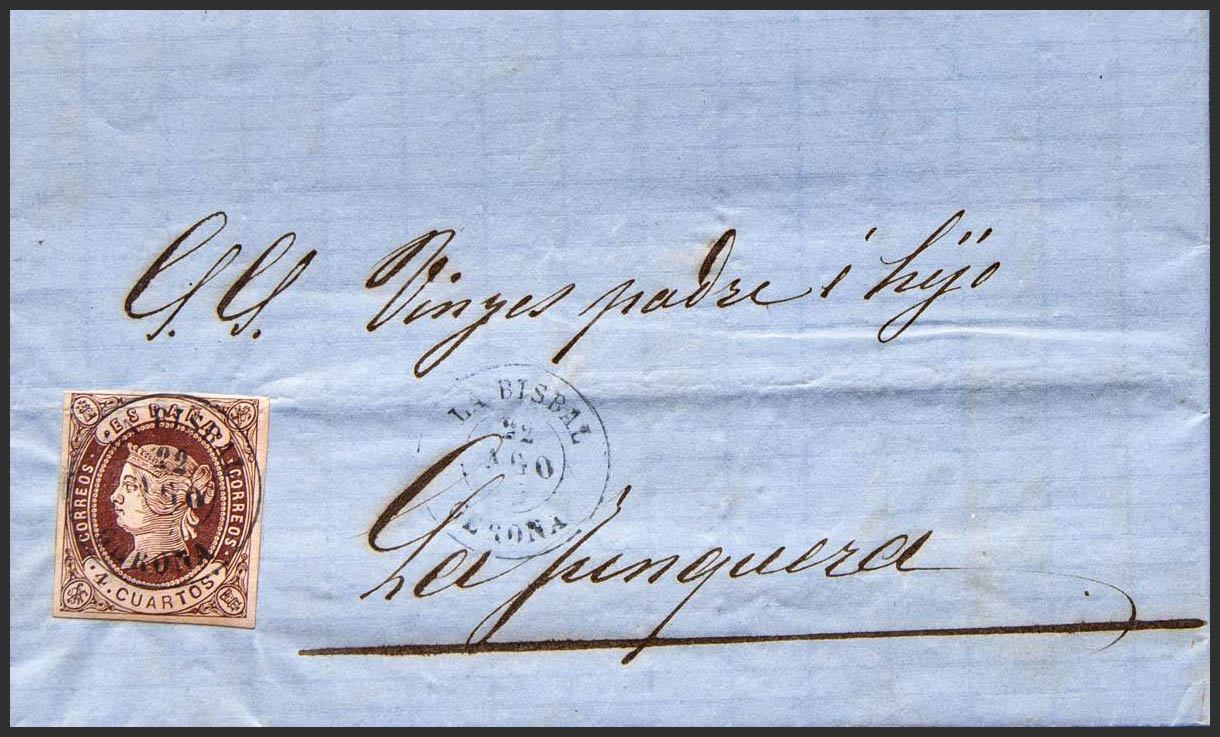 S. S. Vinyes padre é hijo
LA BISBAL
22
AGO
GERONA
La Junquera
ESPAÑA
CORREOS
CORREOS
4. CUARTOS
LA BISBAL
22
AGO
GERONA